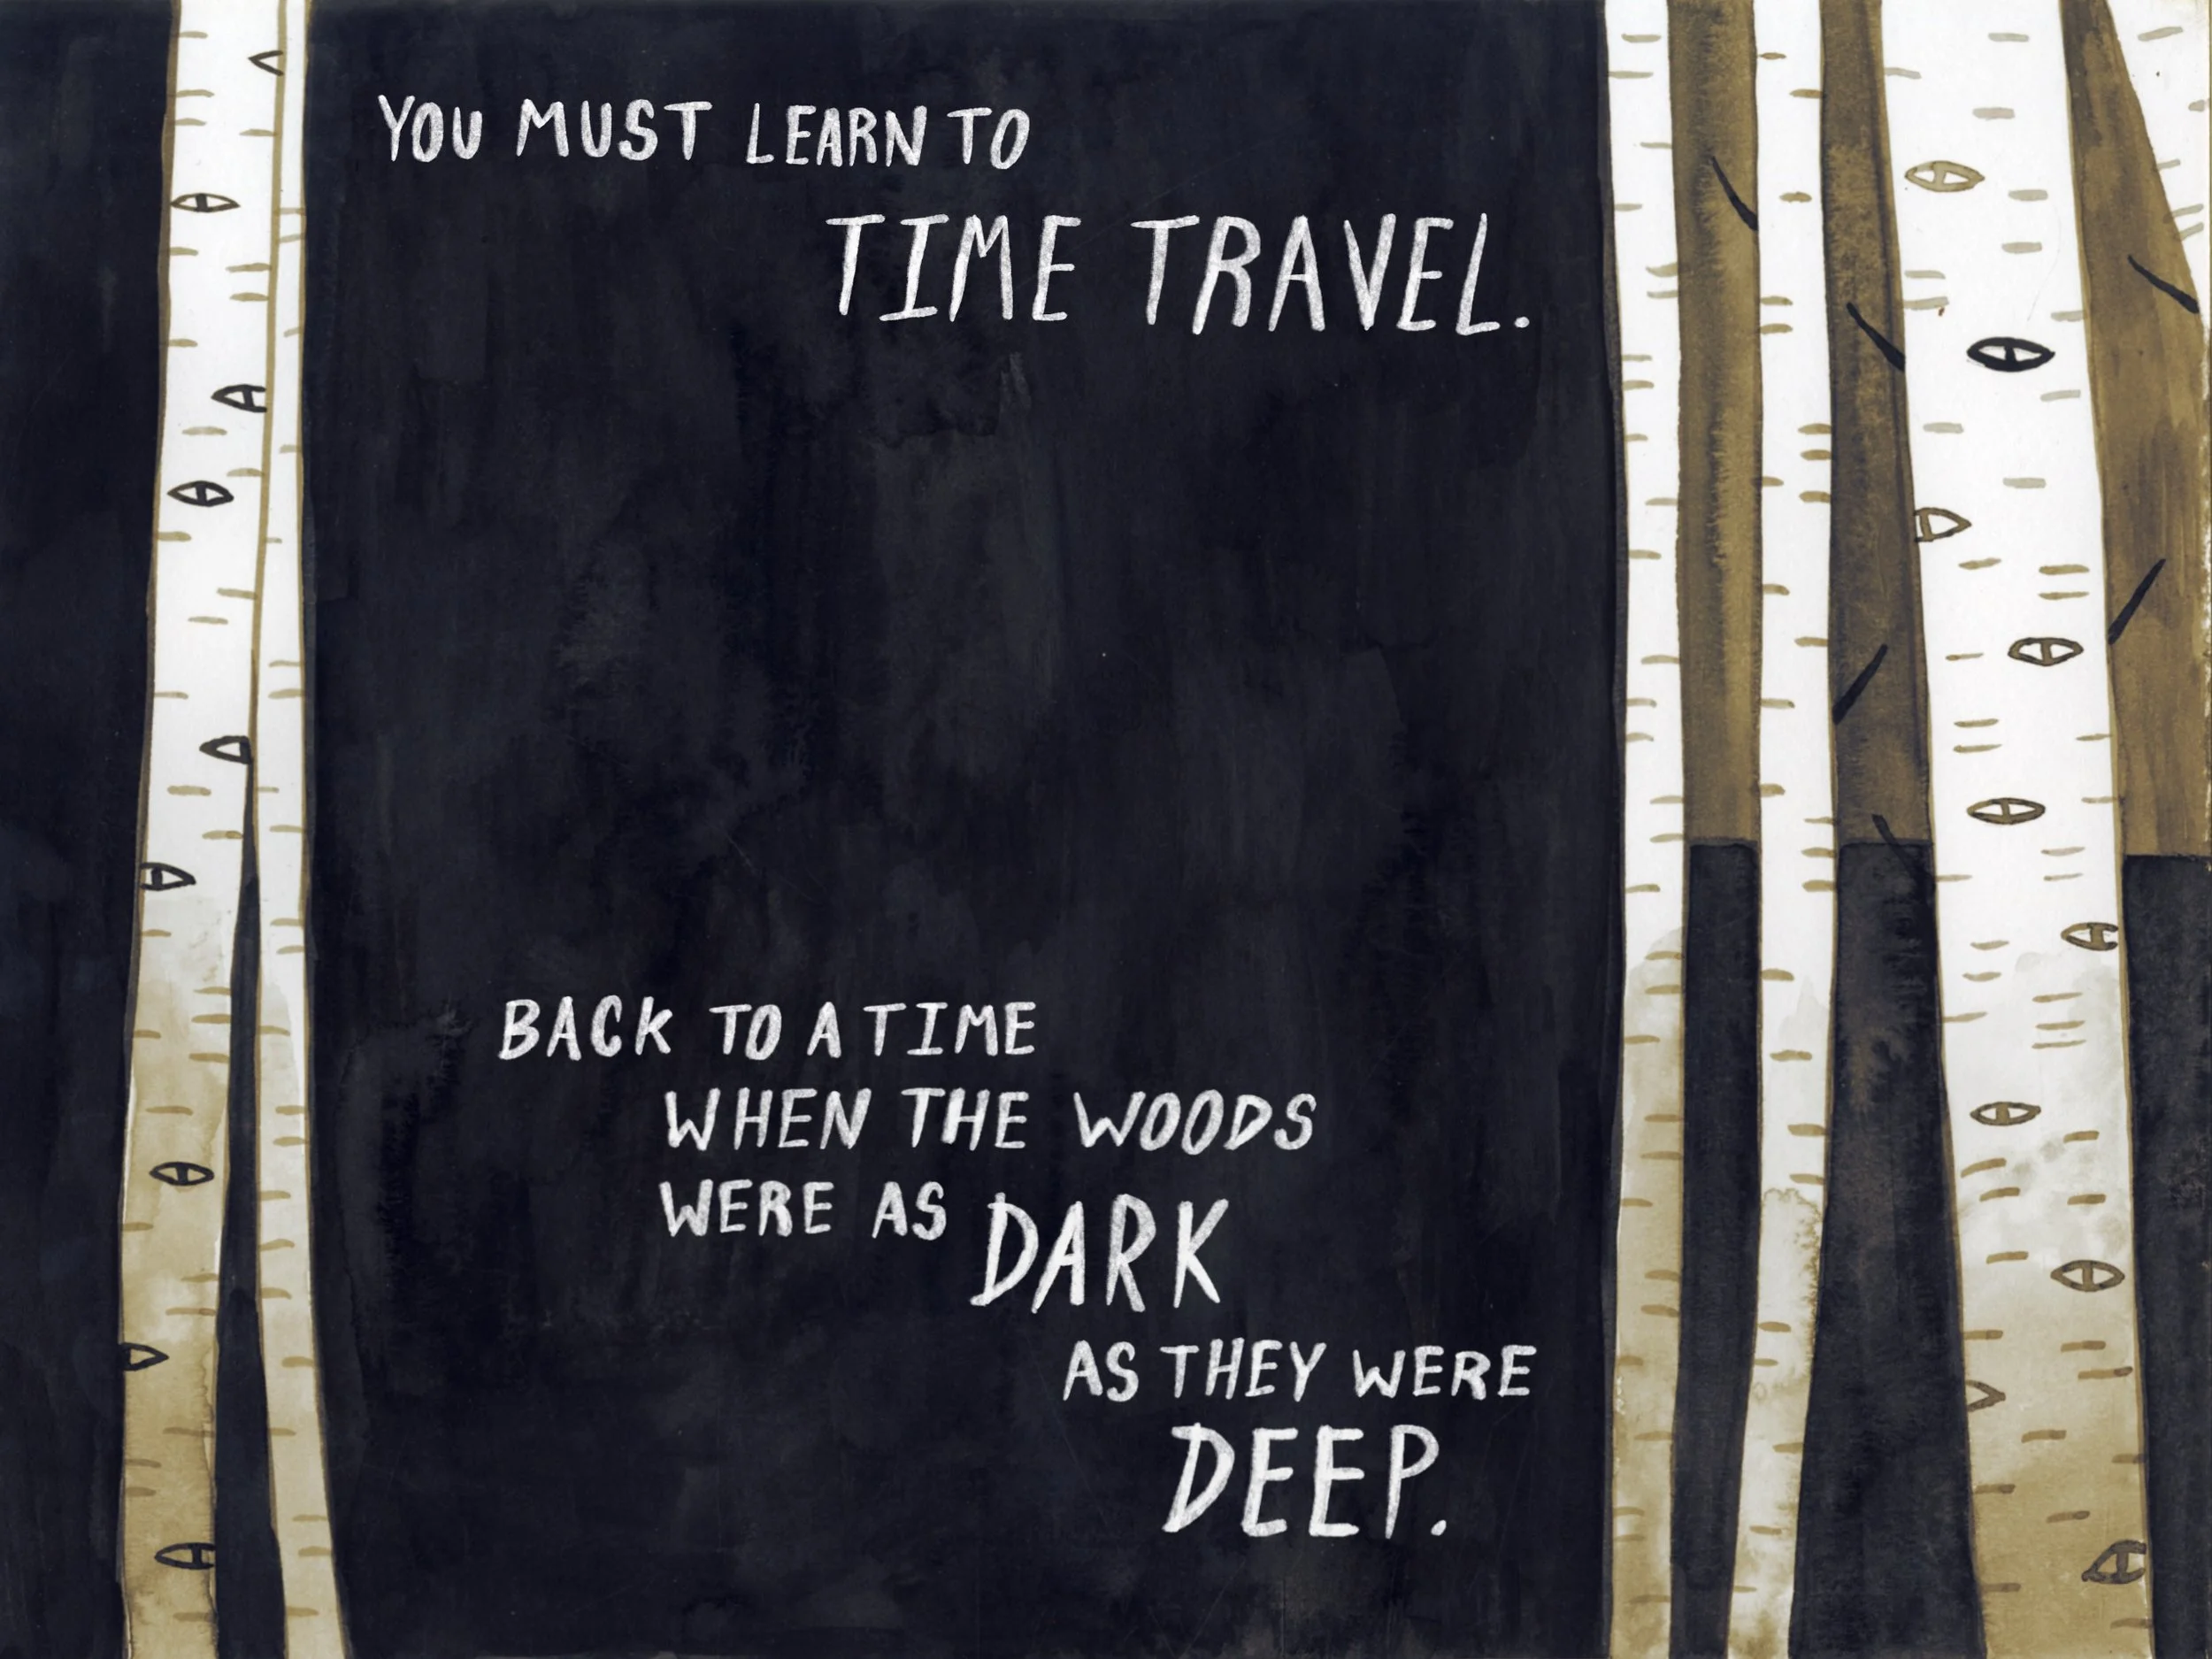 YOU MUST LEARN TO
TIME TRAVEL.
BACK TO A TIME
WHEN THE WOODS
WERE AS DARK
AS THEY WERE
DEEP.